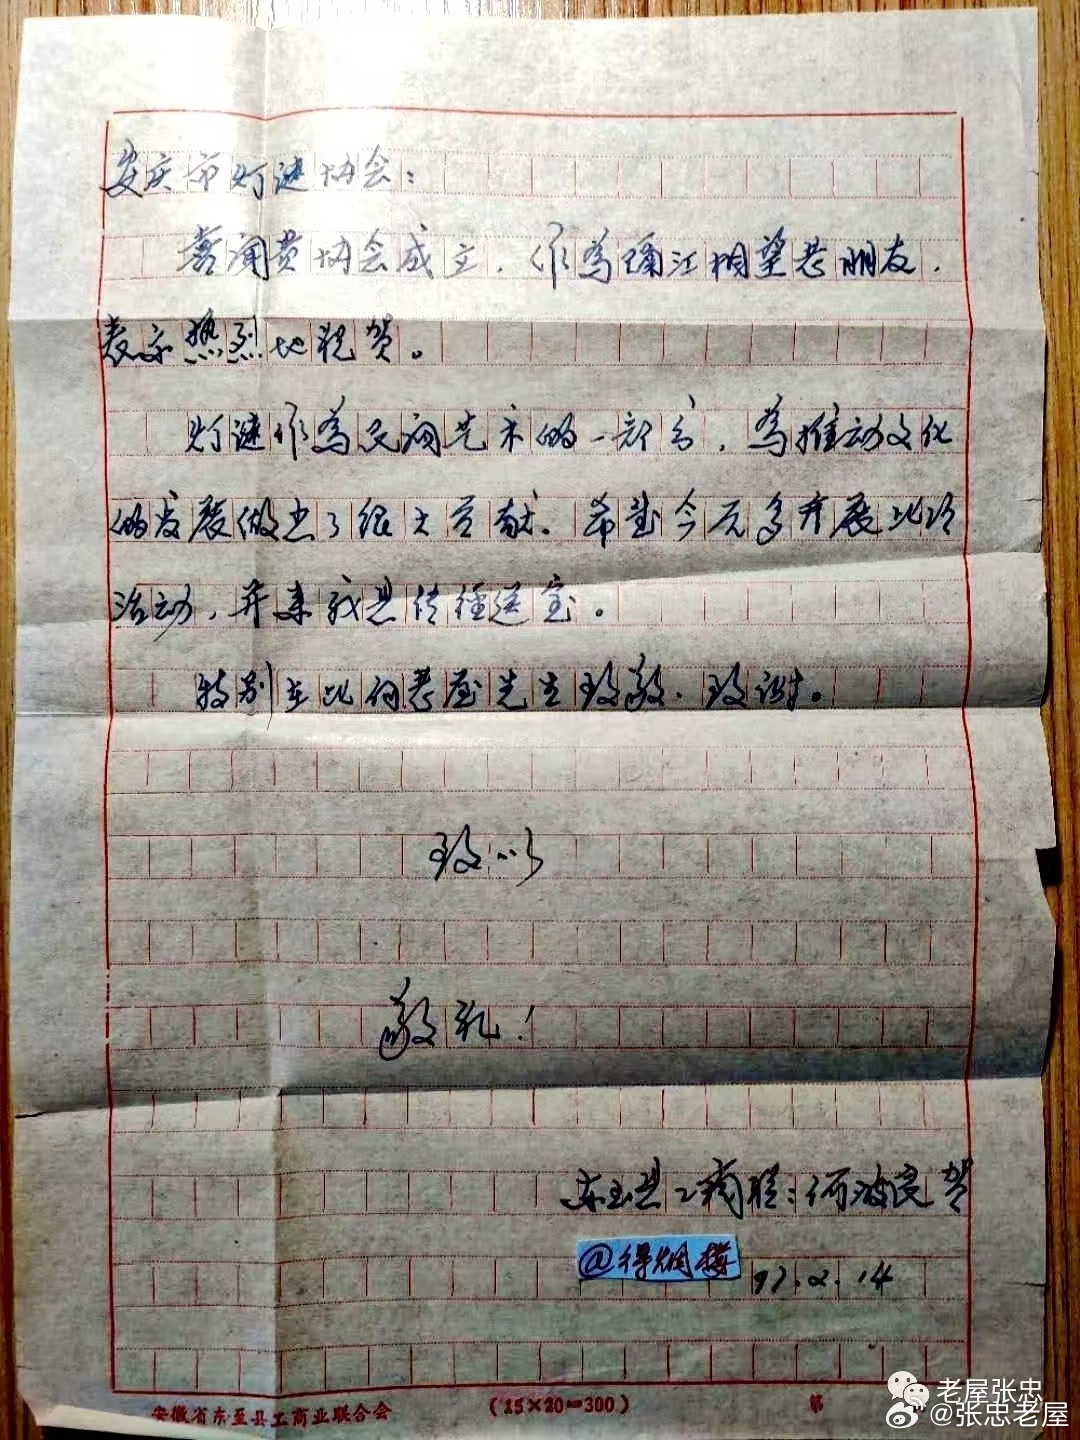 安庆市灯谜协会：
喜闻贵协会成立，作为隔江相望老朋友，
表示热烈地祝贺。
灯谜作为民间艺术的一部分，为推动文化
的发展做出了很大贡献。希望今后多开展此项
活动，并来我县传经送宝。
特别在此向老屋先生致敬、致谢。
致以
敬礼！
东至县工商联：何波良贺
@得烟楼
97.2.14
安徽省东至县工商业联合会
(15×20=300)
第
老屋张忠
@张忠老屋